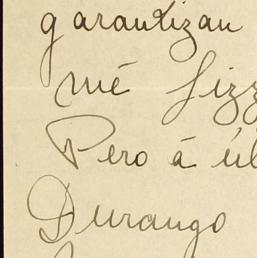 garantizan
mé fizz
Pero á úl
Durango